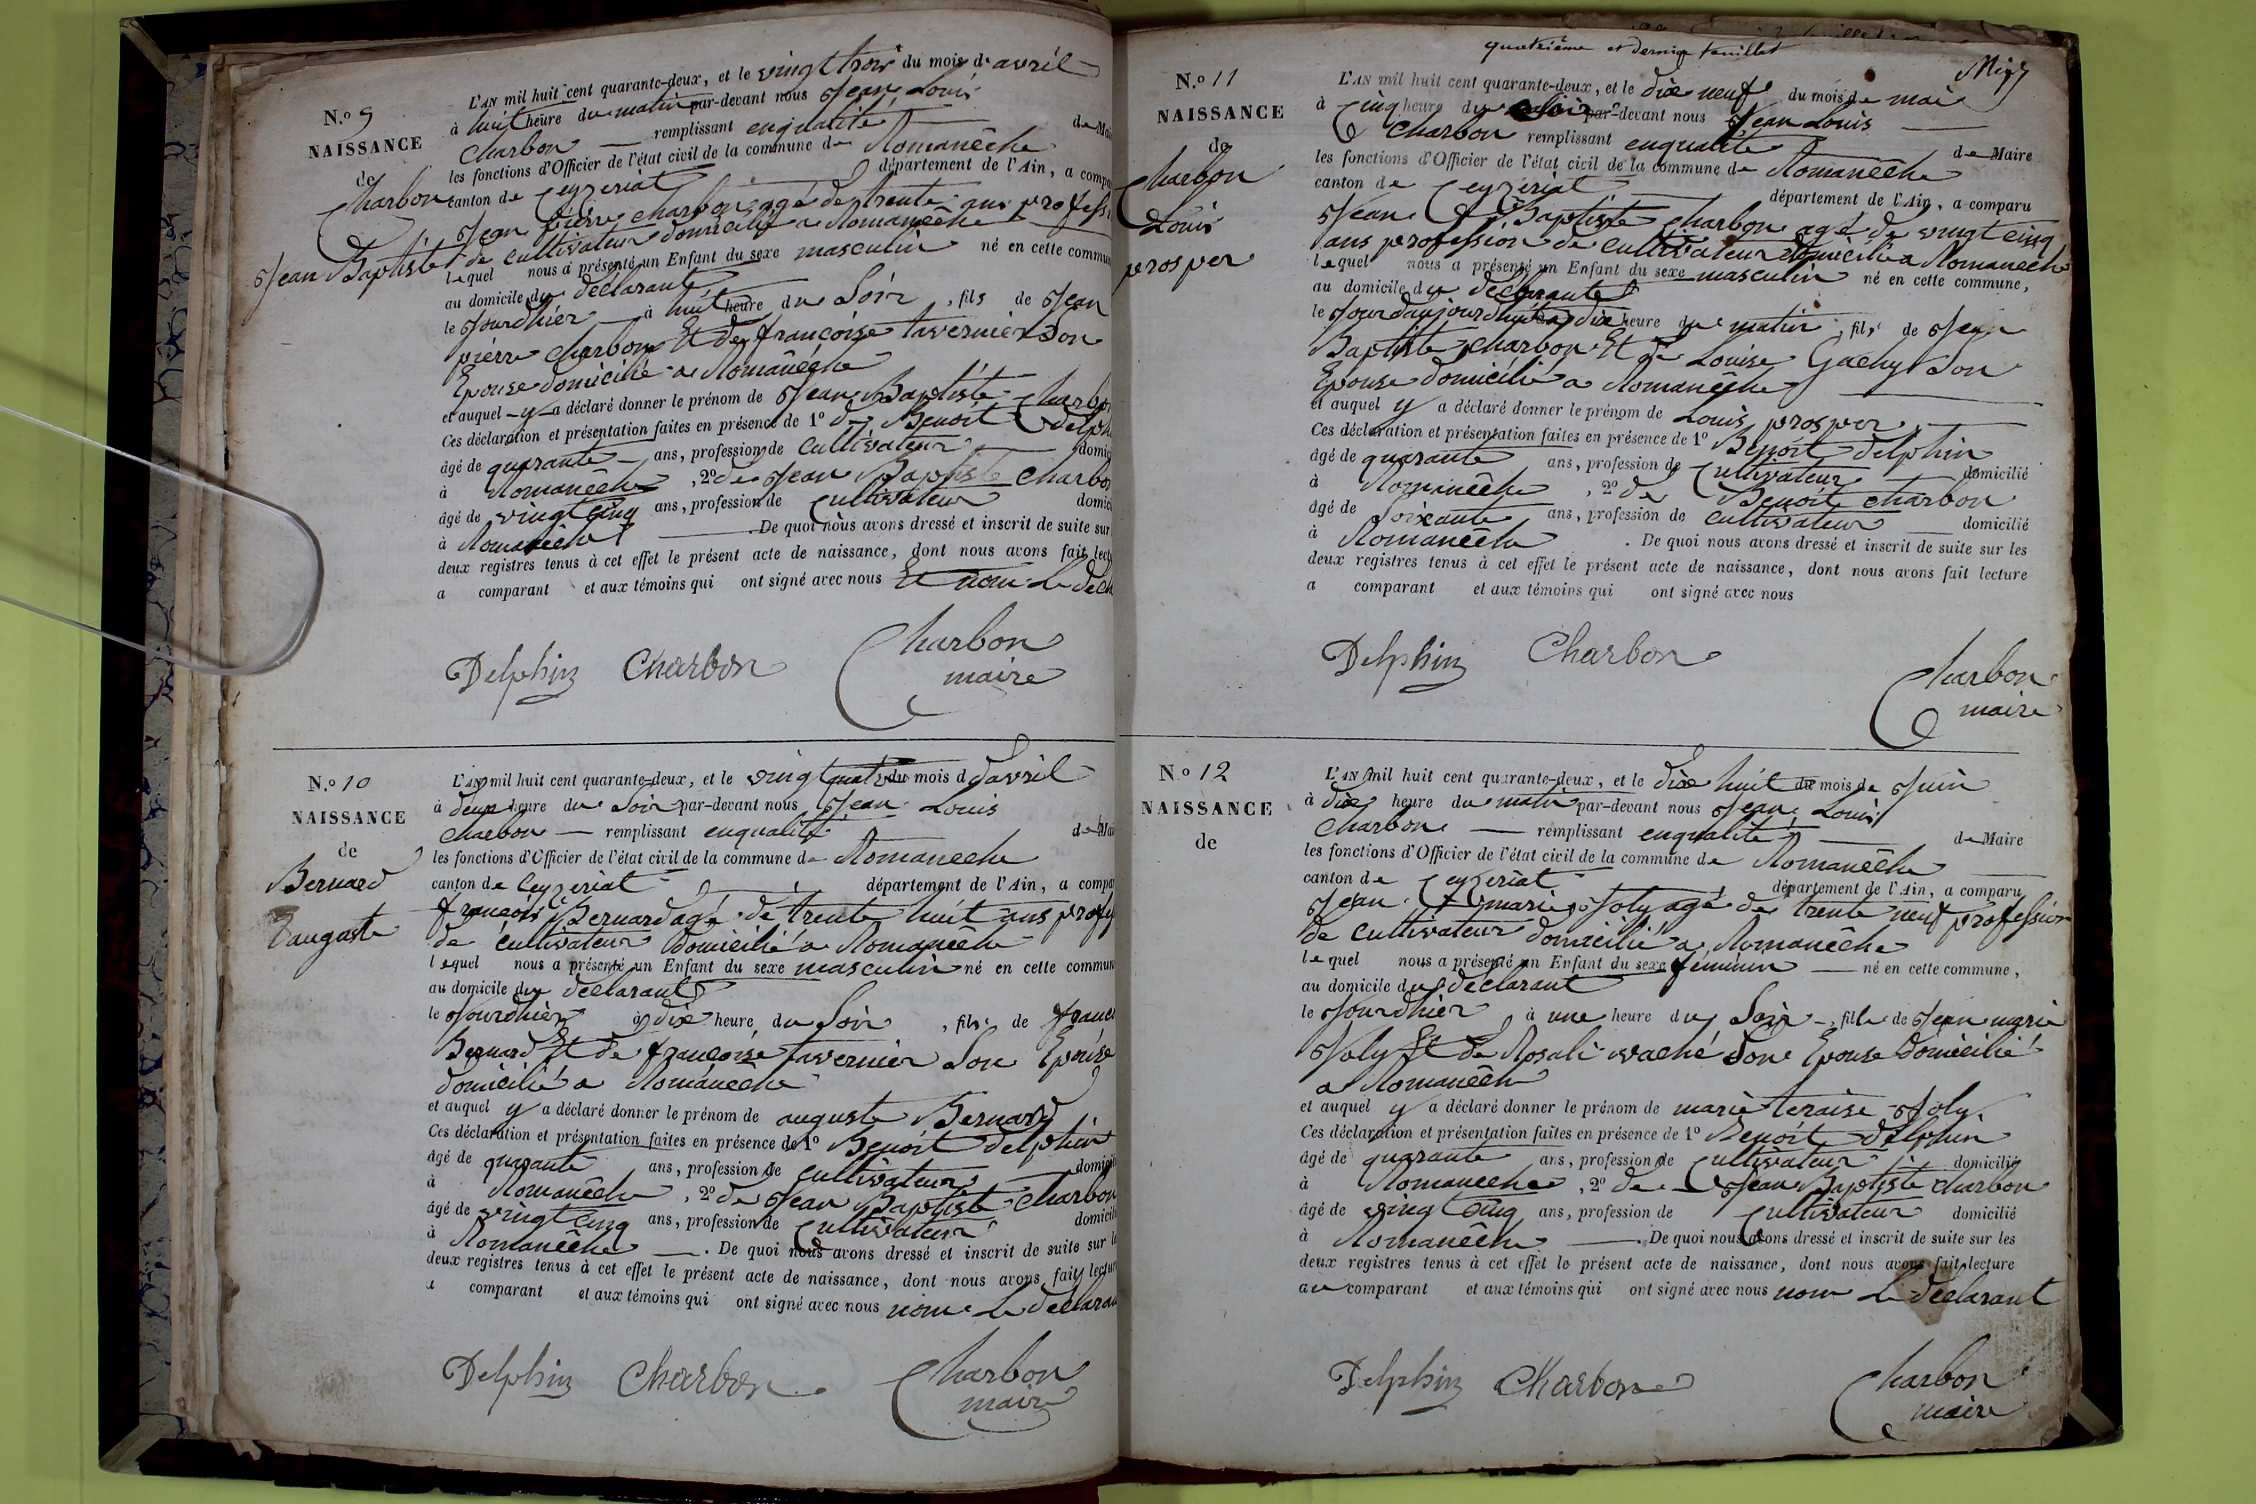 N.º 9
NAISSANCE
de
Charbon
Jean Baptiste
L'AN mil huit cent quarante-deux, et le vingt trois du mois d'avril
à huit heure du matin par-devant nous Jean Louis
Charbon remplissant enqualité de Mai
les fonctions d'Officier de l'état civil de la commune de Romanêche
canton de Ceyzeriat département de l'Ain, a compa
Jean pierre charbon agé de trente ans professi
de cultivateur domicilié a Romanêche
lequel nous a présenté un Enfant du sexe masculin né en cette commun
au domicile du déclarant
le Jourdhier à huit heure du Soir, fils de Jean
pierre charbon Et de françoise tavernier Son
Epouse domicilié a Romanêche
et auquel y a déclaré donner le prénom de Jean Baptiste Charbon
Ces déclaration et présentation faites en présence de 1º de Benoit Delph
âgé de quarante ans, profession de cultivateur domici
à Romanêche, 2º de Jean Baptiste Charbon
âgé de vingt cinq ans, profession de Cultivateur domici
à Romanêche. De quoi nous avons dressé et inscrit de suite sur
deux registres tenus à cet effet le présent acte de naissance, dont nous avons fait lectu
a comparant et aux témoins qui ont signé avec nous Et non Le décl
Delphin Charbon Charbon
maire
N.º 10
NAISSANCE
de
Bernard
auguste
L'AN mil huit cent quarante-deux, et le vingt quatre du mois d d'avril
à deux heure du Soir par-devant nous Jean Louis
Charbon remplissant enqualité de Mai
les fonctions d'Officier de l'état civil de la commune de Romaneche
canton de Ceyzeriat département de l'Ain, a compar
françois Bernard agé de trente huit ans profes
de cultivateur domicilié a Romanêche
lequel nous a présenté un Enfant du sexe masculin né en cette commun
au domicile du déclarant
le Jourdhier à dix heure du Soir, fils de franco
Bernard Et de françoise tavernier Son Epouse
domicilié a Romanêche
et auquel y a déclaré donner le prénom de auguste Bernard
Ces déclaration et présentation faites en présence de 1º Benoit delphin
âgé de quarante ans, profession de cultivateur domicili
à Romanêche, 2º de Jean Baptiste Charbon
âgé de vingt cinq ans, profession de Cultivateur domicili
à Romanêche. De quoi nous avons dressé et inscrit de suite sur l
deux registres tenus à cet effet le présent acte de naissance, dont nous avons fait lectur
a comparant et aux témoins qui ont signé avec nous non Le déclaran
Delphin Charbon Charbon
maire
quatrième et dernier feuillet
N.º 11
NAISSANCE
de
Charbon
Louis
prosper
L'AN mil huit cent quarante-deux, et le dix neuf du mois de mai
à Cinq heure du Soir par-devant nous Jean Louis
Charbon remplissant enqualité de Maire
les fonctions d'Officier de l'état civil de la commune de Romanêche
canton de Ceyzeriat département de l'Ain, a comparu
Jean Baptiste charbon agé de vingt cinq
ans profession de cultivateur domicilié a Romanêche
lequel nous a présenté un Enfant du sexe masculin né en cette commune,
au domicile du déclarant
le Jourdaujourdhuit à dix heure du matin, fils de Jean
Baptiste charbon Et de Louise Gachy Son
Epouse domicilié a Romanêche
et auquel y a déclaré donner le prénom de Louis prosper
Ces déclaration et présentation faites en présence de 1º Benoit delphin
âgé de quarante ans, profession de Cultivateur domicilié
à Romanêche, 2º de Benoit Charbon
âgé de Soixante ans, profession de cultivateur domicilié
à Romanêche. De quoi nous avons dressé et inscrit de suite sur les
deux registres tenus à cet effet le présent acte de naissance, dont nous avons fait lecture
a comparant et aux témoins qui ont signé avec nous
Delphin Charbon Charbon
maire
N.º 12
NAISSANCE
de
L'AN mil huit cent quarante-deux, et le dix huit du mois de Juin
à dix heure du matin par-devant nous Jean Louis
Charbon remplissant enqualité de Maire
les fonctions d'Officier de l'état civil de la commune de Romanêche
canton de Ceyzeriat département de l'Ain, a comparu
Jean marie Joly agé de trente neuf profession
de cultivateur domicilié a Romanêche
lequel nous a présenté un Enfant du sexe féminin né en cette commune,
au domicile du déclarant
le Jourdhier à une heure du Soir, fille de Jean marie
Joly Et de Rosali vaché Son Epouse domicilié
a Romanêche
et auquel y a déclaré donner le prénom de marie teraise Joly
Ces déclaration et présentation faites en présence de 1º Benoit delphin
âgé de quarante ans, profession de Cultivateur domicilié
à Romaneche, 2º de Jean Baptiste charbon
âgé de vingt Cinq ans, profession de Cultivateur domicilié
à Romanêche. De quoi nous avons dressé et inscrit de suite sur les
deux registres tenus à cet effet le présent acte de naissance, dont nous avons fait lecture
au comparant et aux témoins qui ont signé avec nous non Le déclarant
Delphin Charbon Charbon
maire